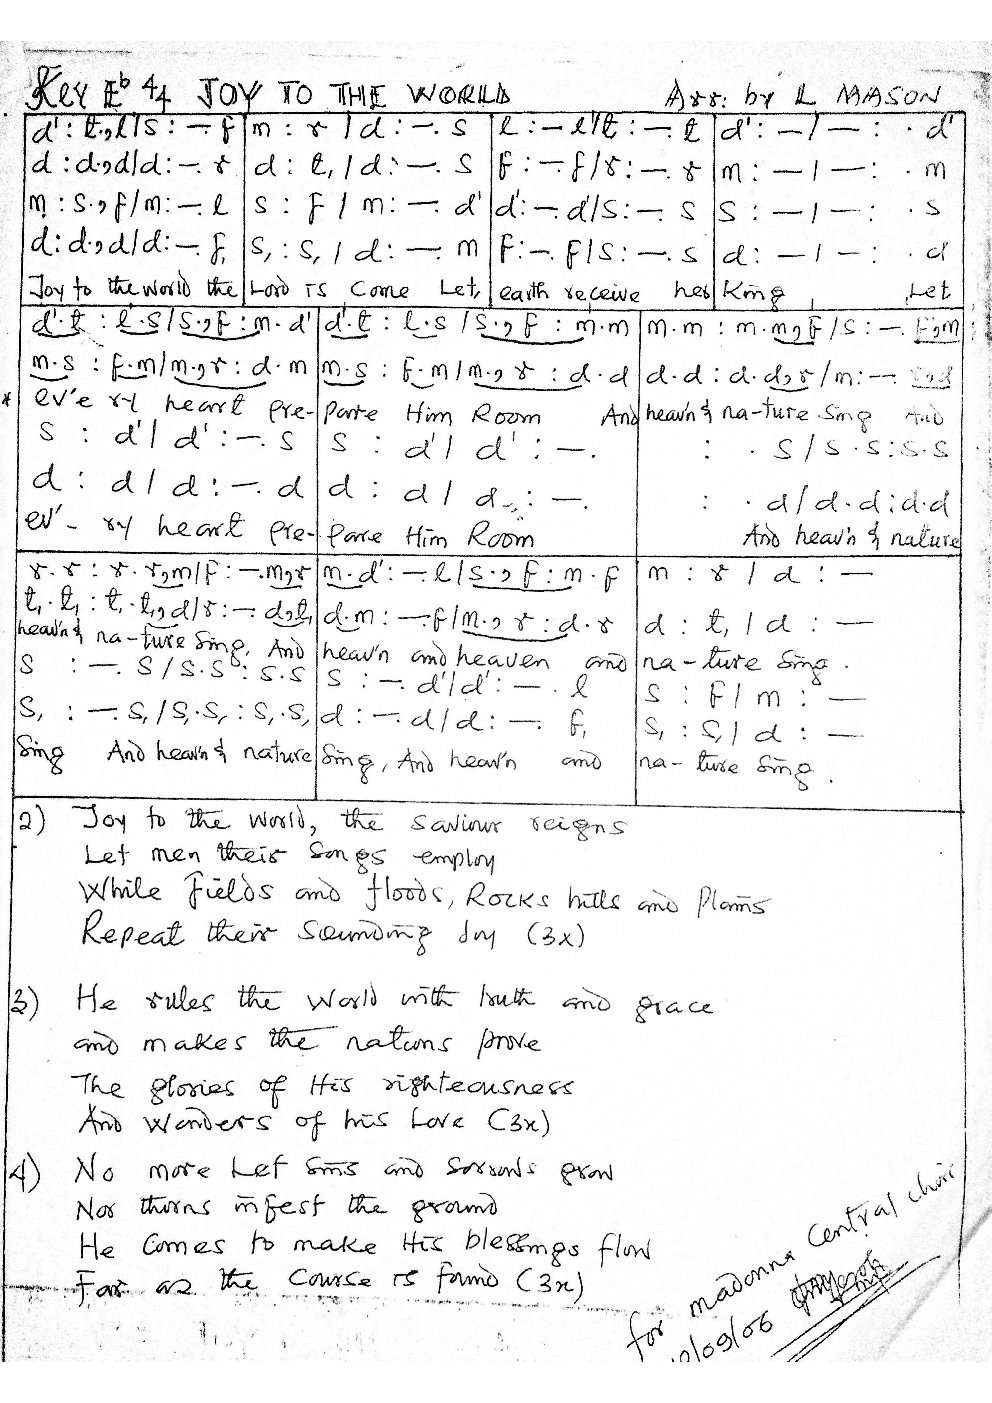 Key E♭ 4/4 JOY TO THE WORLD Arr: by L MASON
d' : t.,l / s : —. f | m : r / d : —. s | l : — l / t : —. t | d' : — / — : . d'
d : d.,d / d : —. r | d : t, / d : —. s | f : —. f / r : —. r | m : — / — : . m
m : s., f / m : —. l | s : f / m : —. d' | d' : —. d / s : —. s | s : — / — : . s
d : d.,d / d : —. f, | s, : s, / d : —. m | f : —. f / s : —. s | d : — / — : . d
Joy to the world the | Lord is come Let, | earth receive her | King , Let
d'.t : l.s / s.,f : m.d' | d'.t : l.s / s., f : m.m | m.m : m.m,f / s : —. f,m
m.s : f.m / m.,r : d.m | m.s : f.m / m., r : d.d | d.d : d.d,r / m : —. r,d
* ev'e ry heart pre- | pare Him Room And | heav'n & na-ture sing And
s : d' / d' : —. s | s : d' / d' : —. | : . s / s.s : s.s
d : d / d : —. d | d : d / d : —. | : . d / d.d : d.d
ev'- ry heart pre- | pare Him Room | And heav'n & nature
r.r : r.r,m / f : —.m,r | m.d' : —. l / s., f : m.f | m : r / d : —
t,.t, : t,.t,,d / r : —. d,t, | d.m : —. f / m., r : d.r | d : t, / d : —
heav'n & na-ture Sing, And | heav'n and heaven and | na-ture Sing.
s : —. s / s.s : s.s | s : —. d' / d' : —. l | s : f / m : —
s, : —. s, / s,.s, : s,.s, | d : —. d / d : —. f, | s, : s, / d : —
Sing And heav'n & nature | Sing, And heav'n and | na-ture Sing.
2) Joy to the world, the saviour reigns
Let men their songs employ
While fields and floods, Rocks hills and Plains
Repeat their sounding Joy (3x)
3) He rules the World with truth and grace
and makes the nations prove
The glories of His righteousness
And wonders of his Love (3x)
4) No more Let sins and sorrows grow
Nor thorns infest the ground
He comes to make His blessings flow
Far as the course is found (3x)
for madonna central choir
/09/06